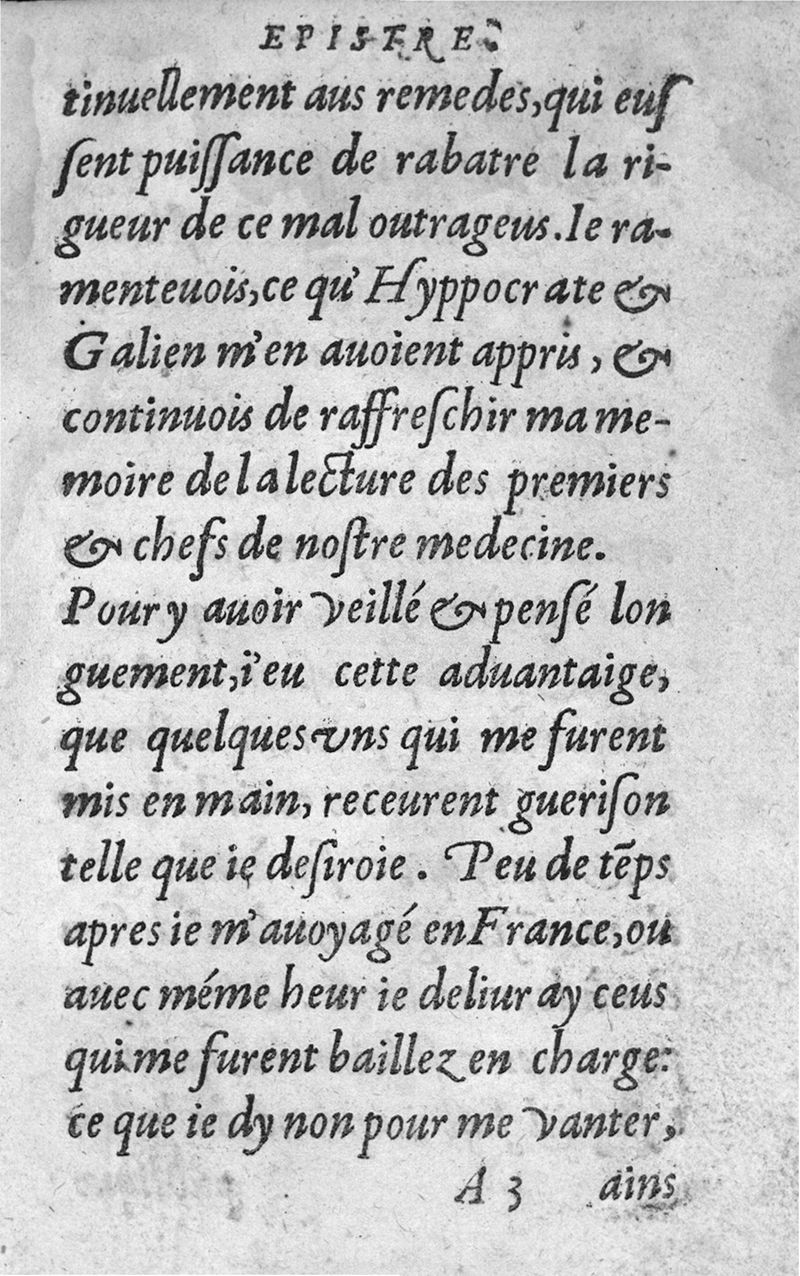 EPISTRE
tinuellement aus remedes,qui euſ
ſent puiſſance de rabatre la ri-
gueur de ce mal outrageus.Ie ra-
menteuois,ce qu' Hyppocrate &
Galien m'en auoient appris, &
continuois de raffreſchir ma me-
moire de la lecture des premiers
& chefs de noſtre medecine.
Pour y auoir veillé & penſé lon
guement,i'eu cette aduantaige,
que quelques vns qui me furent
mis en main, receurent gueriſon
telle que ie deſiroie. Peu de tẽps
apres ie m'auoyagé en France,ou
auec méme heur ie deliuray ceus
qui me furent baillez en charge:
ce que ie dy non pour me vanter,
A 3 ains